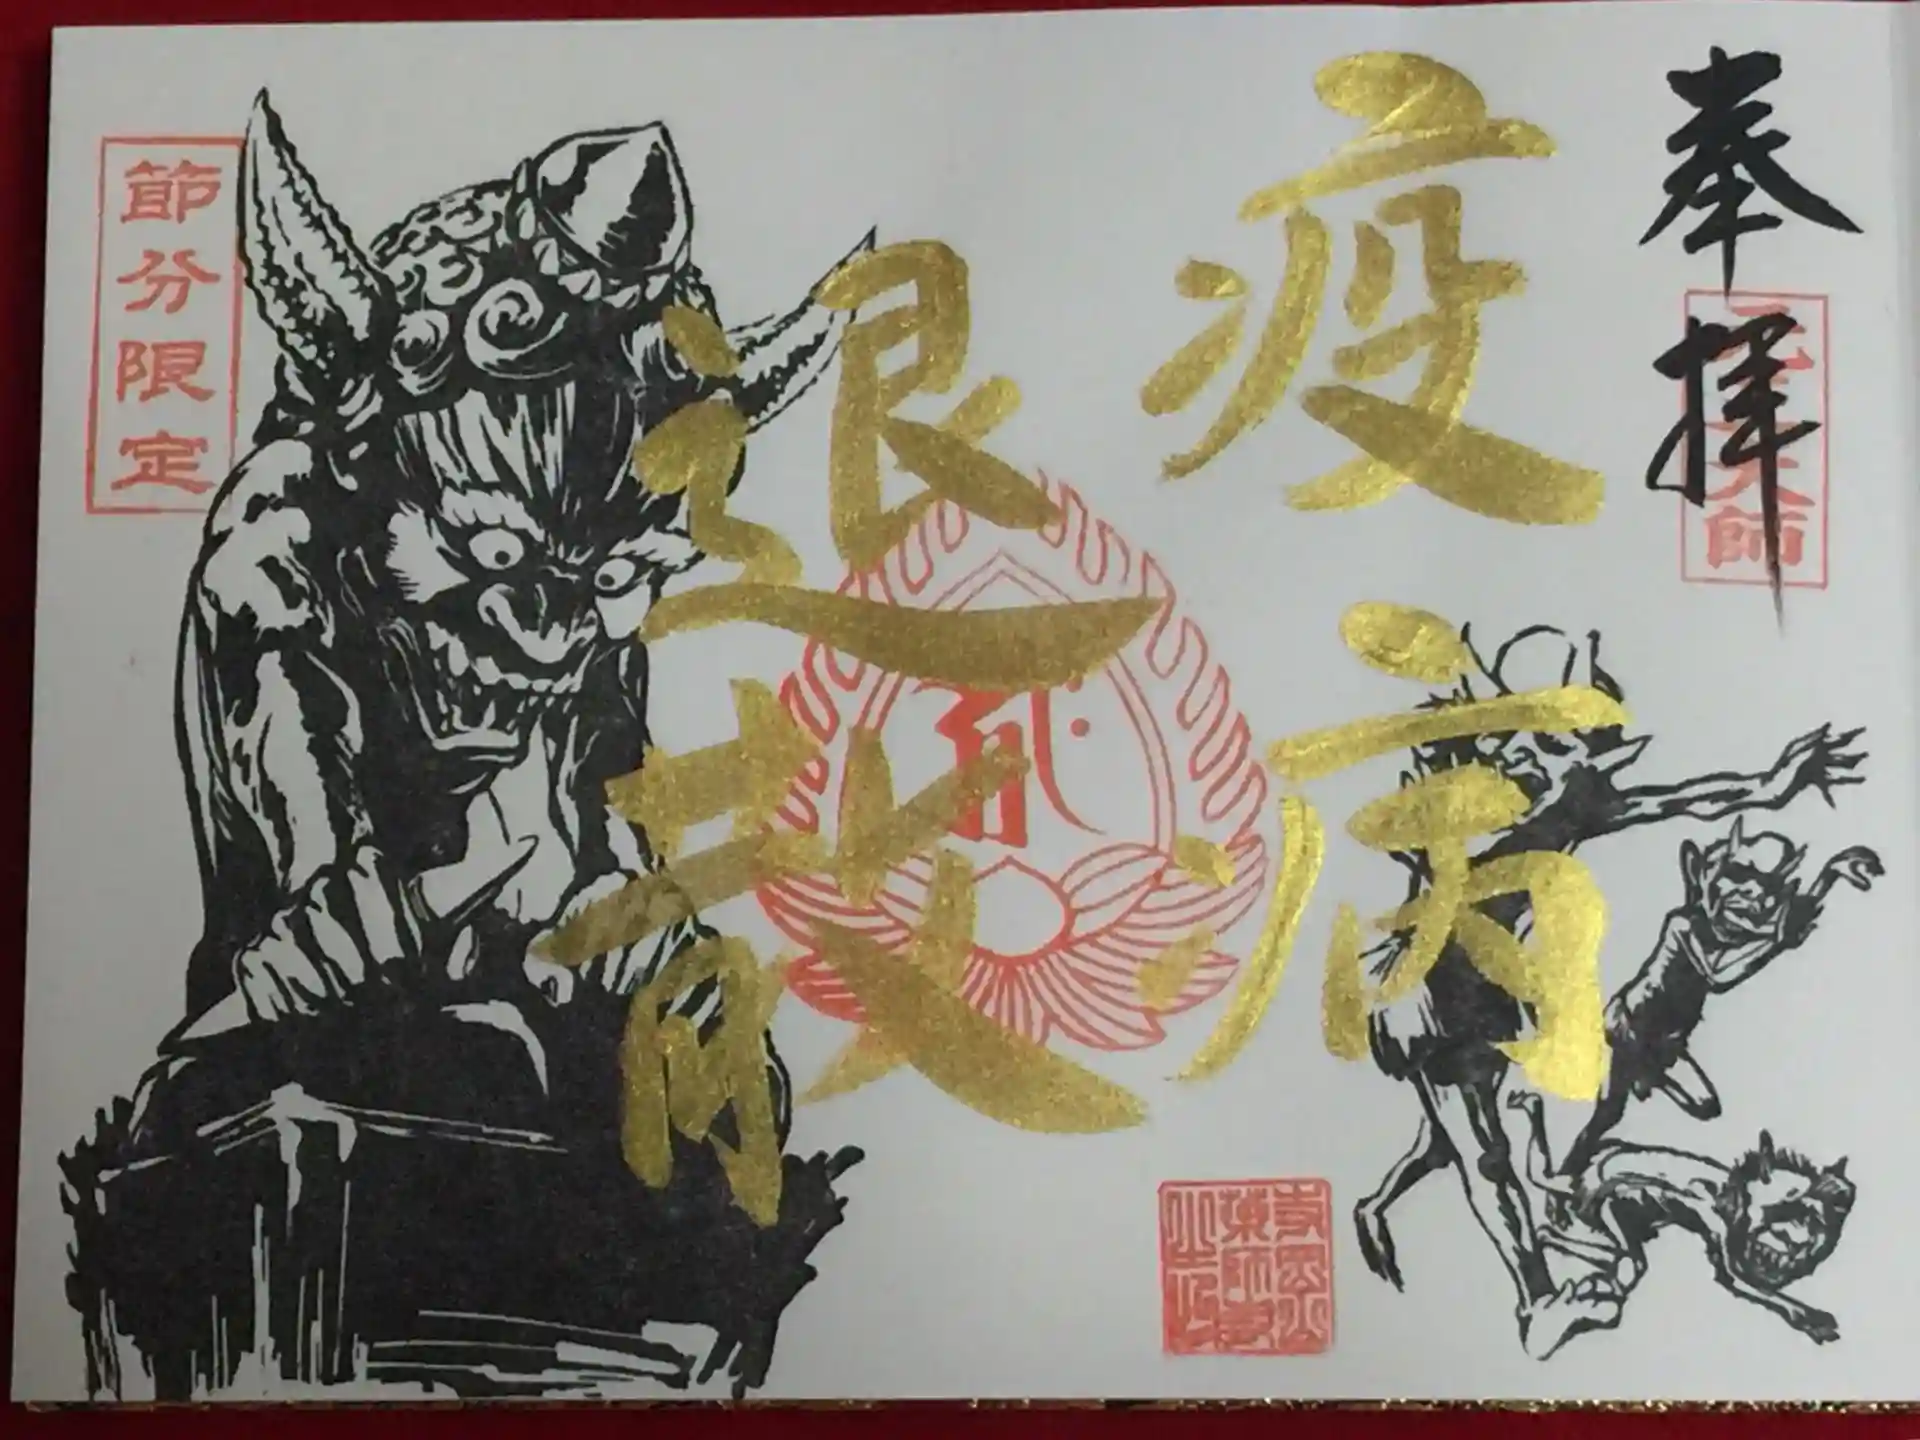 奉拝
元三大師
疫病
退散
節分限定